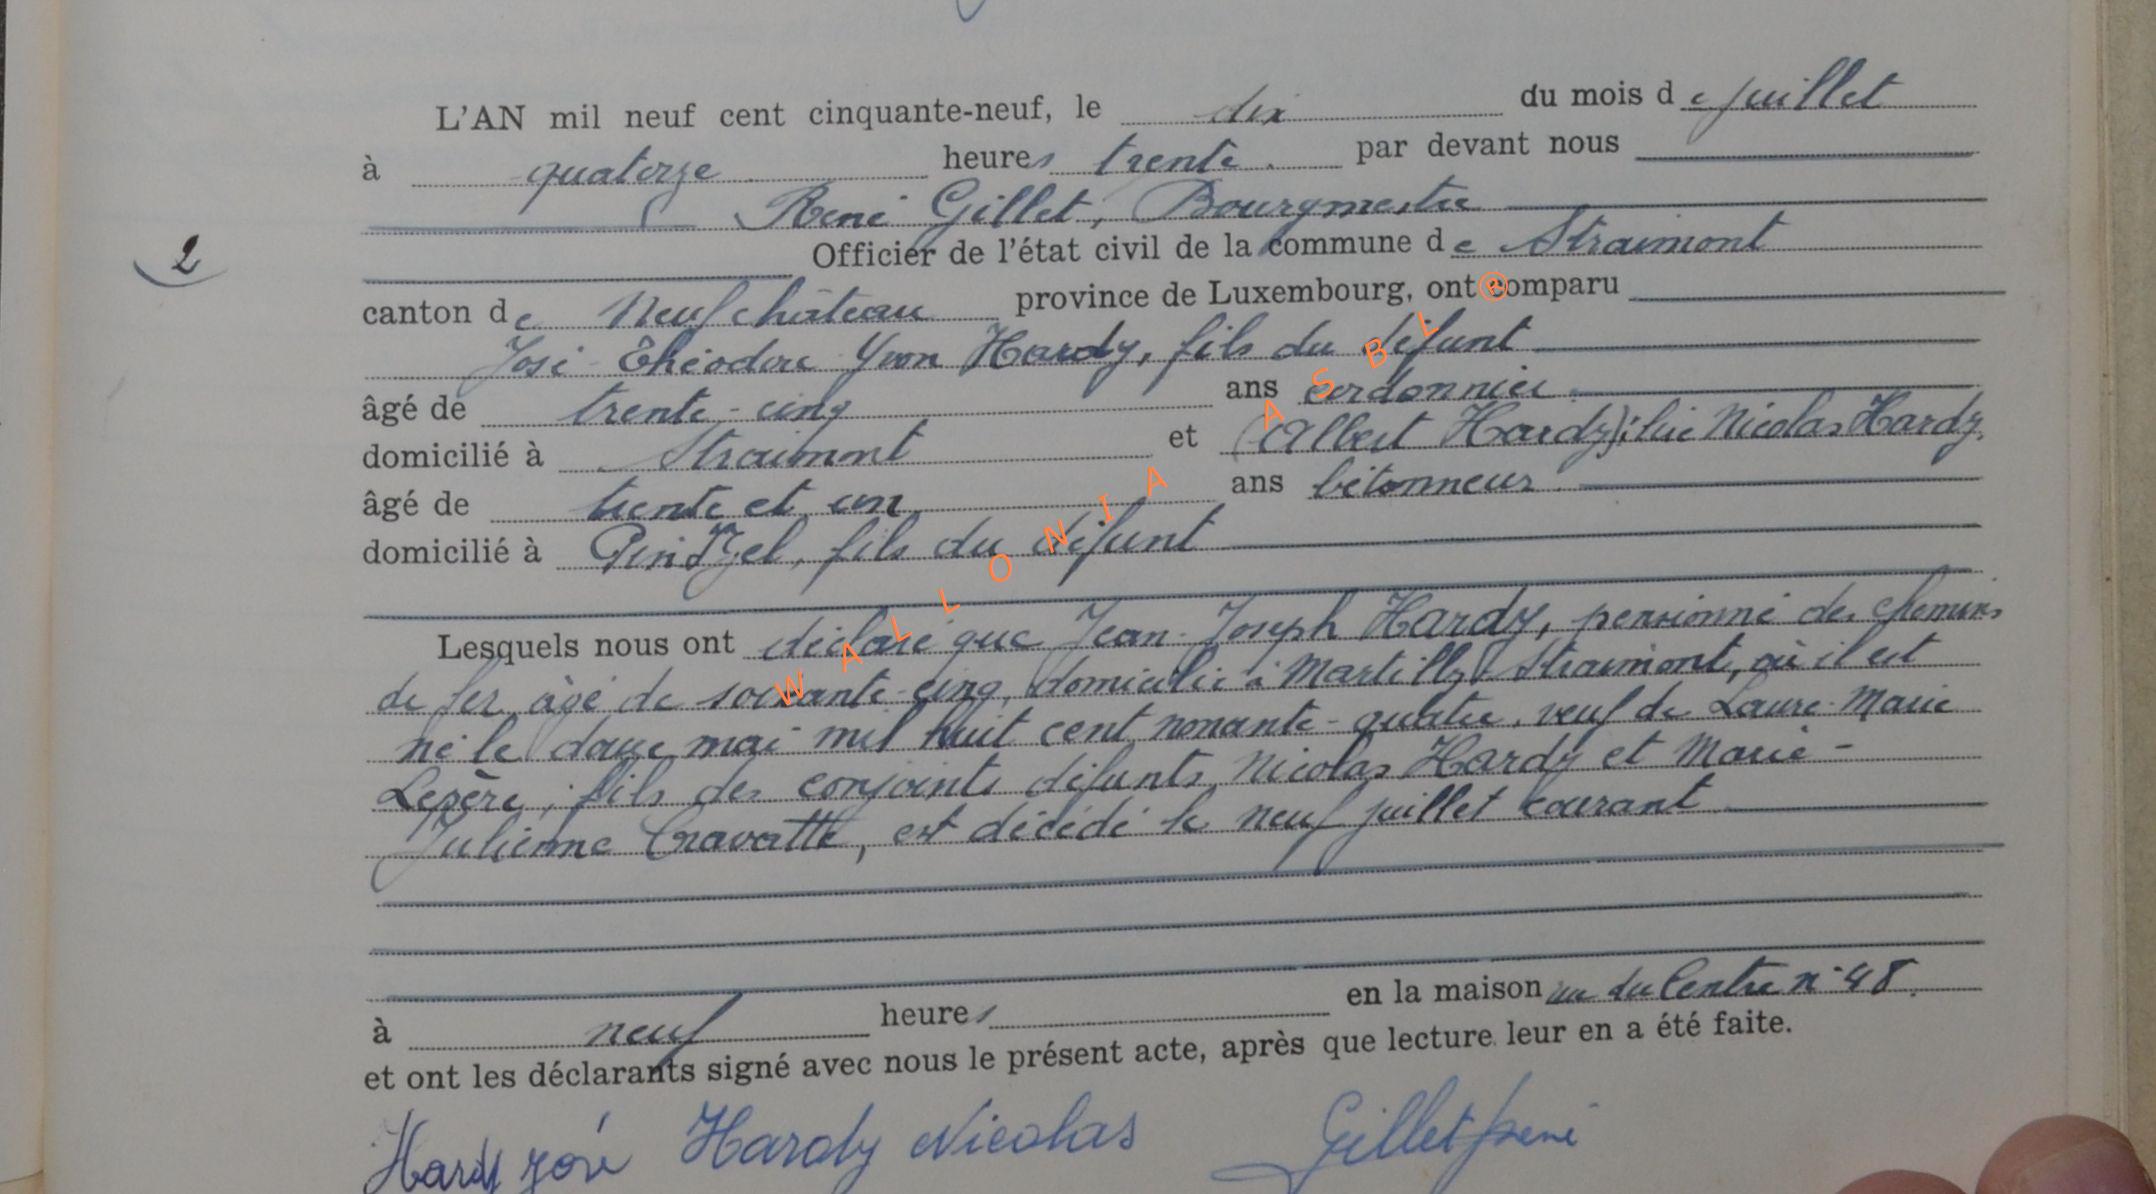 L'AN mil neuf cent cinquante-neuf, le dix du mois de juillet
à quatorze heures trente. par devant nous
René Gillet, Bourgmestre
2
Officier de l'état civil de la commune de Straimont
canton de Neufchâteau province de Luxembourg, ont comparu
José-Théodore Yvon Hardy, fils du défunt
âgé de trente-cinq ans cordonnier
domicilié à Straimont et (Albert Hardy); lire Nicolas Hardy,
âgé de trente et un ans bétonneur.
domicilié à fils du défunt
Lesquels nous ont déclaré que Jean-Joseph Hardy, pensionné des chemins
de fer, âgé de soixante-cinq, domicilié à Martilly, Straimont, où il est
né le douze mai mil huit cent nonante-quatre, veuf de Laure-Marie
fils des conjoints défunts Nicolas Hardy et Marie-
Julienne Cravatte, est décédé le neuf juillet courant
à neuf heures en la maison rue du Centre n° 48.
et ont les déclarants signé avec nous le présent acte, après que lecture leur en a été faite.
Hardy José Hardy Nicolas Gillet René
WALLONIA ASBL ®